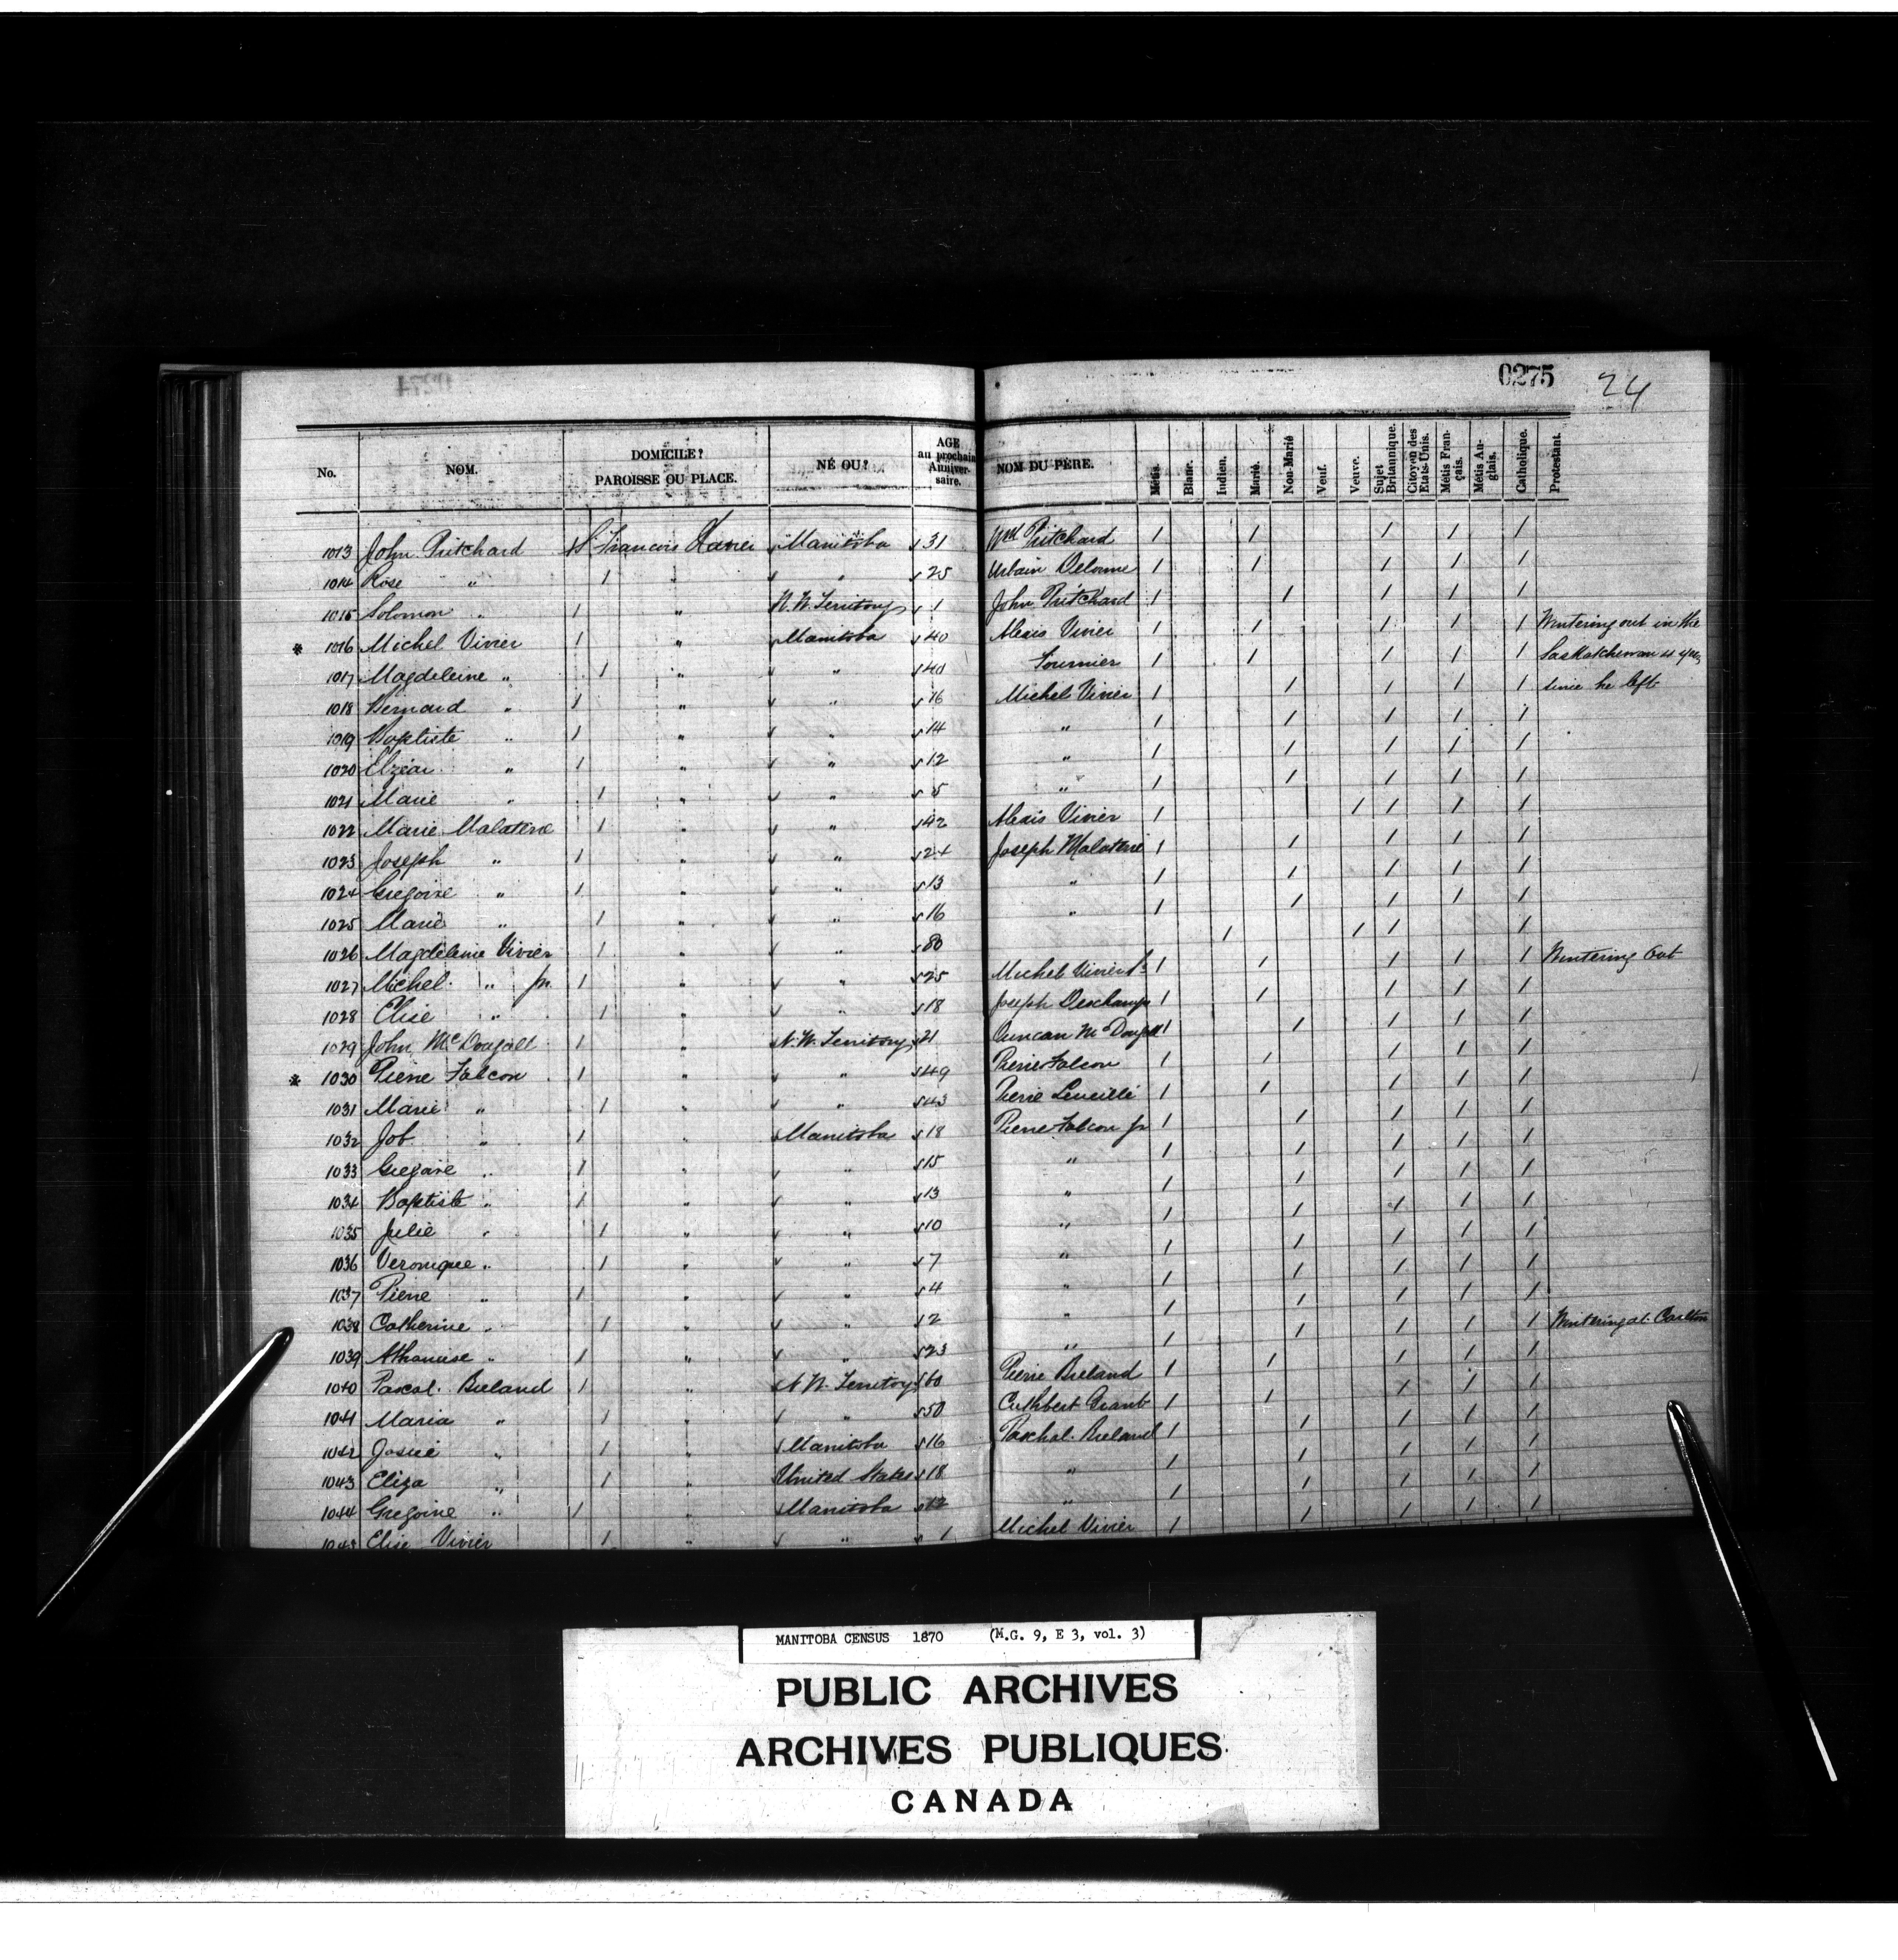 0275 24
No. NOM. DOMICILE? PAROISSE OU PLACE. NÉ OU? AGE au prochain Anniversaire. NOM DU PÈRE. Métis. Blanc. Indien. Marié. Non-Marié Veuf. Veuve. Sujet Britannique. Citoyen des Etats-Unis. Métis Français. Métis Anglais. Catholique. Protestant.
1013 John Pritchard St Francois Xavier Manitoba 31 Wm Pritchard / / / / /
1014 Rose " / " " 25 Urbain Delorme / / / / /
1015 Solomon " / " N.W. Territory 1 John Pritchard / / / / /
* 1016 Michel Vivier / " Manitoba 40 Alexis Vivier / / / / / Wintering out in the
1017 Magdeleine " / " " 40 Fournier / / / / / Saskatchewan 4 yrs
1018 Bernard " / " " 16 Michel Vivier / / / / / since he left
1019 Baptiste " / " " 14 " / / / / /
1020 Elzéar " / " " 12 " / / / / /
1021 Marie " / " " 5 " / / / / /
1022 Marie Malaterre / " " 42 Alexis Vivier / / / / /
1023 Joseph " / " " 24 Joseph Malaterre / / / / /
1024 Gregoire " / " " 13 " / / / / /
1025 Marie " / " " 16 " / / / / /
1026 Magdeleine Vivier / " " 80 / / / /
1027 Michel " jr. / " " 25 Michel Vivier Sr / / / / / Wintering Out
1028 Elise " / " " 18 Joseph Deschamps / / / / /
1029 John McDougall / " N.W. Territory 21 Duncan McDougall / / / / /
* 1030 Pierre Falcon / " " 49 Pierre Falcon / / / / /
1031 Marie " / " " 43 Pierre Leveillé / / / / /
1032 Job " / " Manitoba 18 Pierre Falcon jr / / / / /
1033 Gregoire " / " " 15 " / / / / /
1034 Baptiste " / " " 13 " / / / / /
1035 Julie " / " " 10 " / / / / /
1036 Veronique " / " " 7 " / / / / /
1037 Pierre " / " " 4 " / / / / /
1038 Catherine " / " " 2 " / / / / /
1039 Athanase " / " " 23 " / / / / / Wintering at Carlton
1040 Pascal Breland / " N.W. Territory 60 Pierre Breland / / / / /
1041 Maria " / " " 50 Cuthbert Grant / / / / /
1042 Josué " / " Manitoba 16 Paschal Breland / / / / /
1043 Eliza " / " United States 18 " / / / / /
1044 Gregoire " / " Manitoba 12 " / / / / /
1045 Elise Vivier / " " 1 Michel Vivier / / / / /
MANITOBA CENSUS 1870 (M.G. 9, E 3, vol. 3)
PUBLIC ARCHIVES
ARCHIVES PUBLIQUES
CANADA